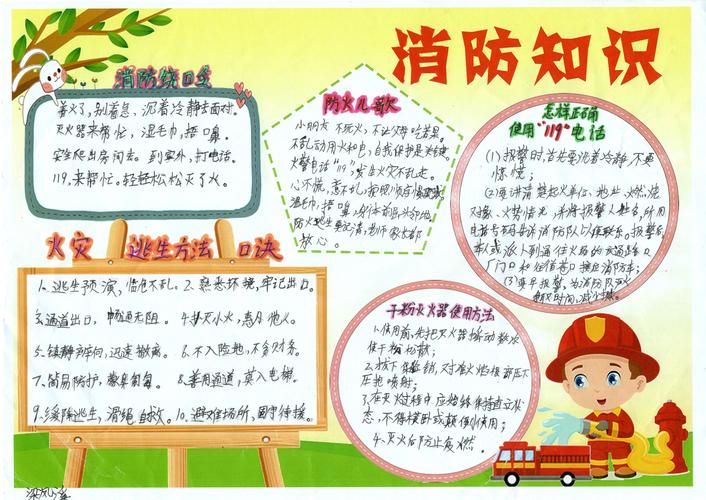 消防知识
消防绕口令
着火了,别着急、沉着冷静去面对。
灭火器来帮忙,湿毛巾,捂口鼻。
安全爬出房间去。到室外,打电话。
119,来帮忙。轻轻松松灭了火。
防火儿歌
小朋友 不玩火,不让父母吃苦果。
不乱动用火和电,自我保护是关键
火警电话"119",发生火灾不乱走。
心不慌,意不乱,按照顺序
湿毛巾,捂口鼻,身体前屈头邻地
防火逃生要记清,老师家长都
放心。
怎样正确
使用"119"电话
(1)报警时,首先要沉着冷静,不要
惊慌;
(2)要讲清楚起火单位、地址、燃烧
对象、火势情况,并将报警人姓名,所用
电话号码告诉消防队以便联系。报警后,
本人或派人到通往火场的交通路口
(门口和住宿巷口)接应消防车;
(3)要早报警,为消防灭火
争取时间,减少损失。
火灾 逃生方法 口诀
1、逃生预演,临危不乱。2、熟悉环境,牢记出口。
3、通道出口,畅通无阻。4、扑灭小火,惠及他人。
5、镇静辨向,迅速撤离。6、不入险地,不贪财务。
7、简易防护,蒙鼻匍匐。8、善用通道,莫入电梯。
9、缓降逃生,滑绳自救。10、避难场所,固守待援。
干粉灭火器使用方法
1、使用前,先把灭火器摇动数次
使干粉松散;
2、拔下保险销,对准火焰根部压下
压把喷射;
3、在灭火过程中,应始终保持直立状
态,不得横卧或颠倒使用;
4、灭火后防止复燃。